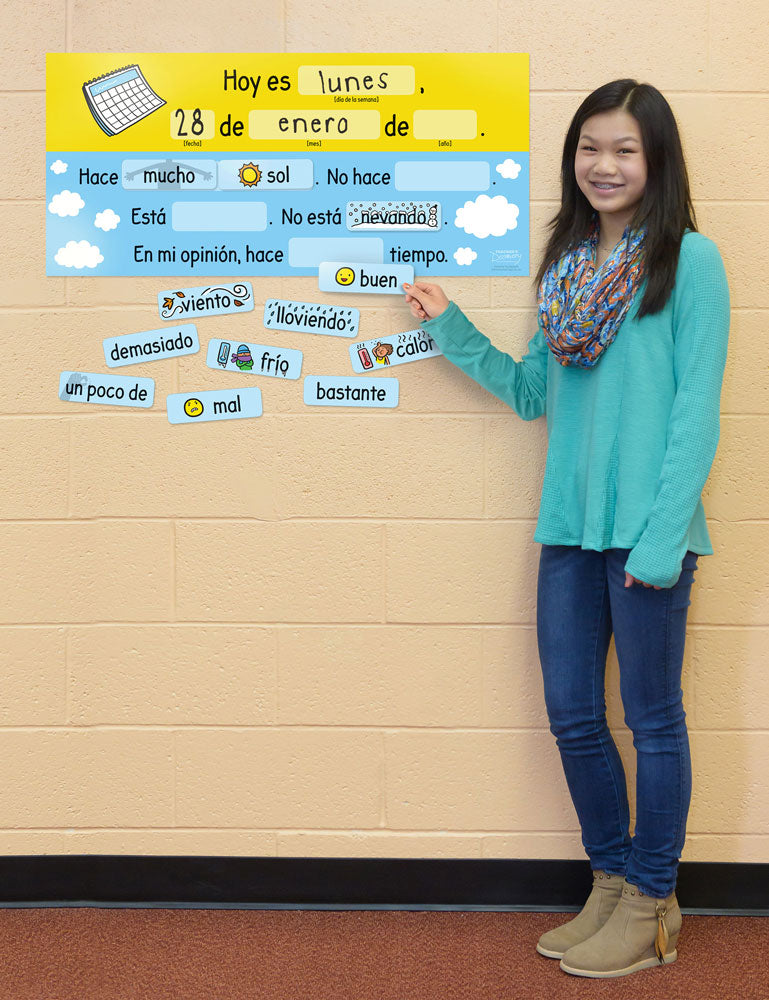 Hoy es lunes,
[día de la semana]
28 de enero de .
[fecha] [mes] [año]
Hace mucho sol. No hace .
Está . No está nevando.
En mi opinión, hace tiempo.
buen
viento
lloviendo
demasiado
frío
calor
un poco de
mal
bastante